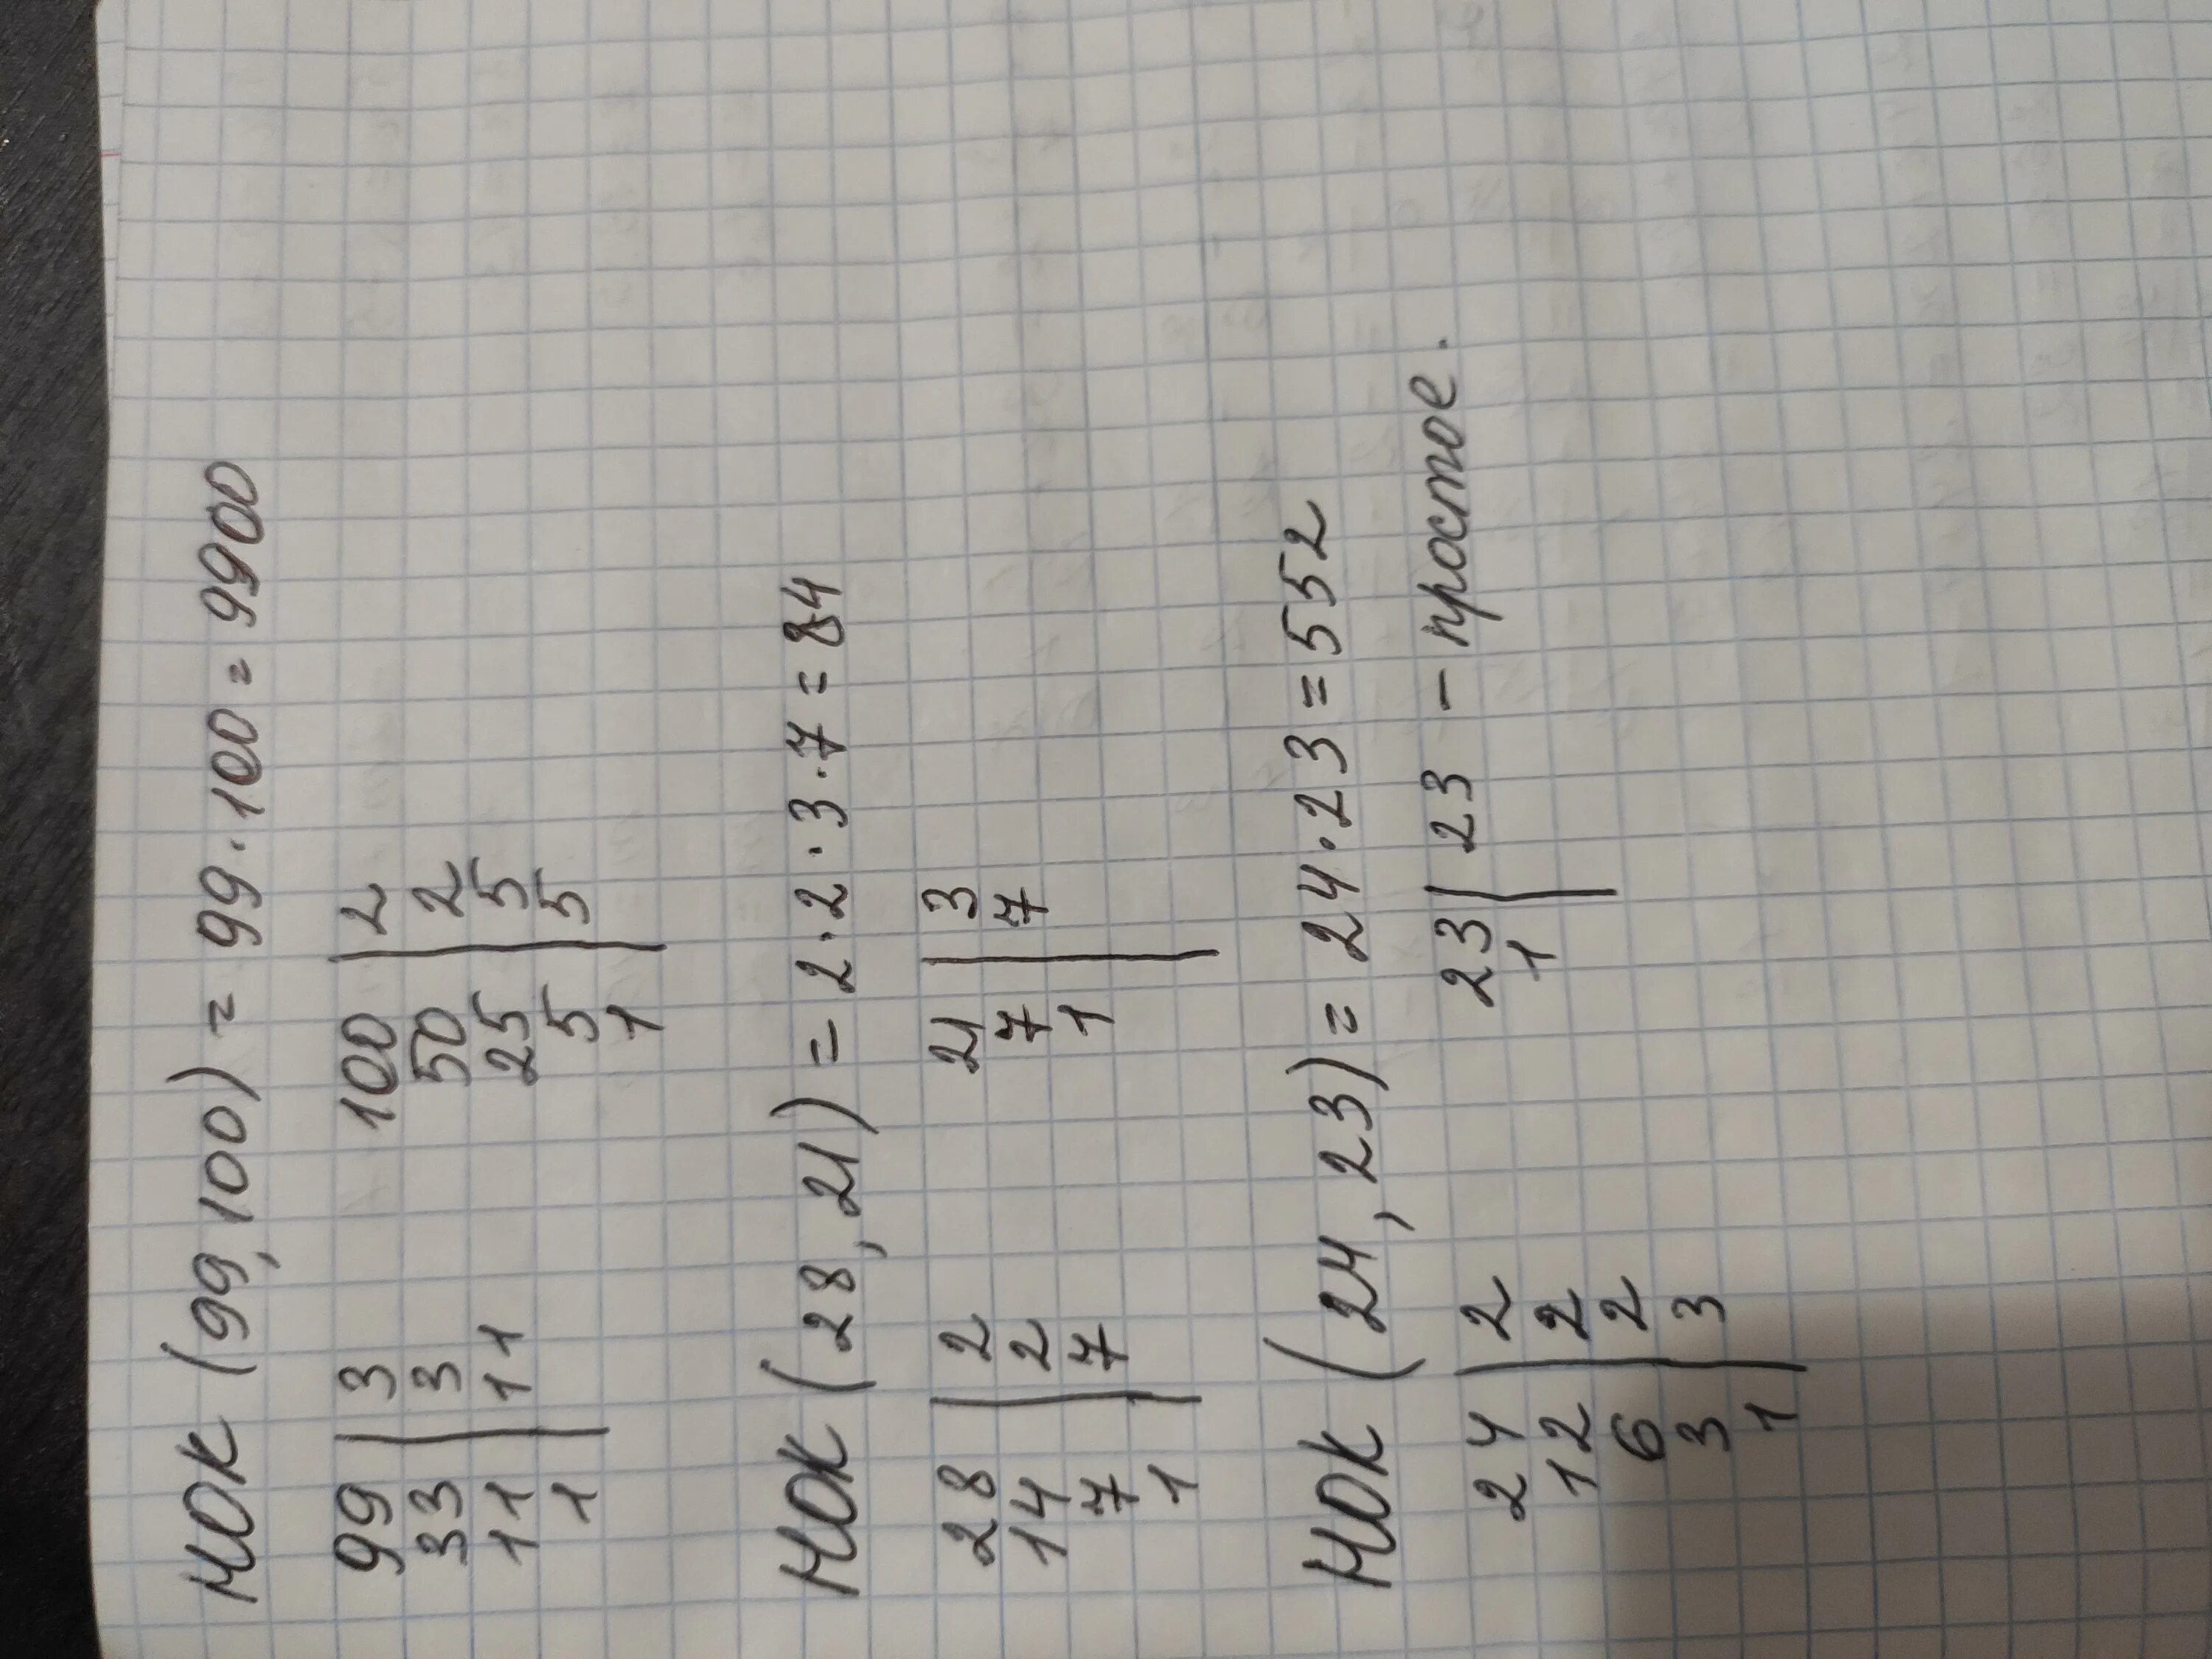 НОК (99,100) = 99·100 = 9900
99 | 3 100 | 2
33 | 3 50 | 2
11 | 11 25 | 5
1 | 5 | 5
1 |
НОК (28, 21) = 2·2·3·7 = 84
28 | 2 21 | 3
14 | 2 7 | 7
7 | 7 1 |
1 |
НОК (24, 23) = 24·23 = 552
24 | 2 23 | 23 – простое.
12 | 2 1 |
6 | 2
3 | 3
1 |